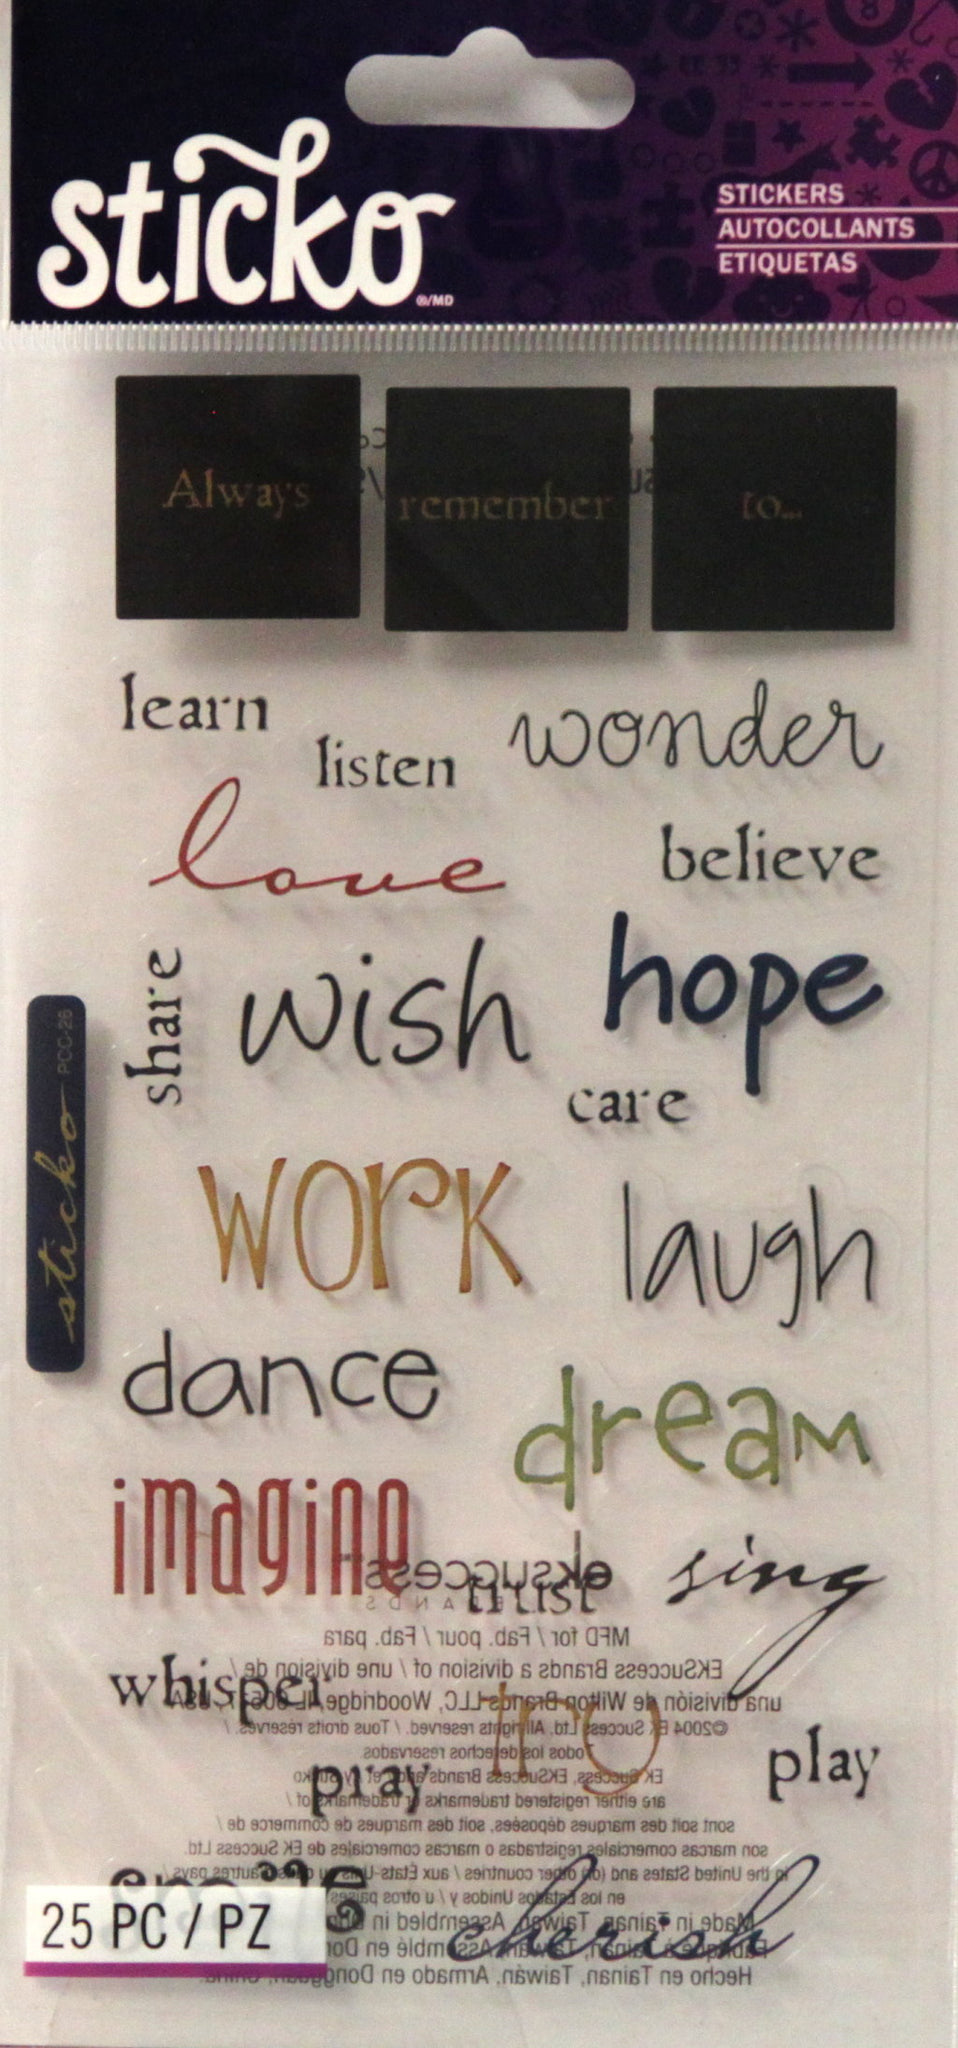 sticko
®/MD
STICKERS
AUTOCOLLANTS
ETIQUETAS
Always remember to...
learn
listen
wonder
love
believe
share
wish
hope
care
work
laugh
dance
dream
imagine
sing
trust
whisper
try
pray
play
smile
cherish
sticko PCC-26
25 PC / PZ
eksuccess
BRANDS
MFD for / Fab. pour / Fab. para
EKSuccess Brands a division of / une division de /
una división de Wilton Brands LLC, Woodridge, IL USA
©2004 EK Success Ltd. All rights reserved. / Tous droits réservés. /
Todos los derechos reservados.
EK Success, EKSuccess Brands and/et /y Sticko
are either registered trademarks or trademarks of /
sont soit des marques déposées, soit des marques de commerce de /
son marcas comerciales registradas o marcas comerciales de EK Success Ltd.
in the United States and (or) other countries / aux États-Unis ou autres pays /
en los Estados Unidos y / u otros países.
Made in Tainan, Taiwan, Assembled in
Tainan, Taiwan, Assemblé en
Hecho en Tainan, Taiwán, Armado en Dongguan, China.